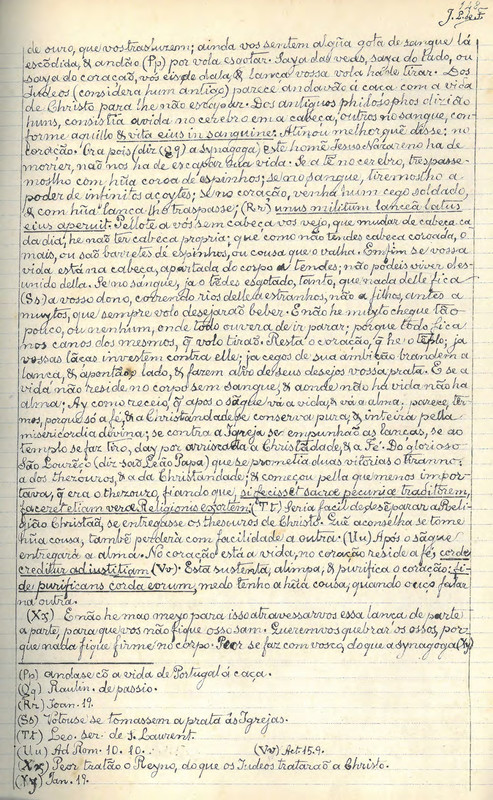 148
J. P. de F.
de ouro, que vos traslurem; ainda vos sentem algũa gota de sangue lá
escõdida, & andão (Pp) por vola esgotar. Saya das veas, saya do lado, ou
saya do coração, vós eis de dala, & lança vossa vola ha de tirar. Dos
Iudeos (considera hum antigo) parece andavão á caca com a vida
de Christo para lhe não escapar. Dos antigos philosophos dizião
huns, consistia a vida no cerebro em a cabeça, outros no sangue, con-
forme aquillo & vita eius in sanguine. Atinou melhor quẽ disse: no
coração. Ora pois (diz (Qq) a synagoga) este homẽ Jesus Nazareno ha de
morrer, não nos ha de escapar a vida. Se a tẽ no cerebro, trespasse-
moslho com hũa coroa de espinhos; se no sangue, tiremoslho a
poder de infinitos açoytes; se no coração, venha hum cego soldado,
& com hũa lança lho traspasse; (Rr) unus militum lanceâ latus
eius aperuit. Pello te a vós sem cabeça vos vejo, que mudar de cabeça ca
da dia, he não ter cabeça propria; que como não tendes cabeça coroada, o
mais, ou são barretes de espinhos, ou cousa que o valha. Emfim se vossa
vida está na cabeça, apartada do corpo a tendes; não podeis viver des-
unido della. Se no sangue, ja o tẽdes esgotado, tanto, que nada delle fica
(Ss) a vosso dono, correndo rios delle a estranhos, não a filhos, antes a
muytos, que sempre volo desejarão beber. E não he muyto chegue tão
pouco, ou nenhum, onde todo ouvera de ir parar; porque todo fica
nos canos dos mesmos, q̃ volo tirão. Resta o coração, q̃ he o tẽplo; ja
vossas lãças investem contra elle; ja cegos de sua ambição brandem a
lança, & apontão o lado, & fazem alvo de seus desejos vossa prata. E se a
vida não reside no corpo sem sangue, & aonde não ha vida não ha
alma; Ay como receio, q̃ apos o sãgue vá a vida, & vá a alma, parece, ter-
mos, porque só a fé, & a Christandade se conserva pura, & inteira pella
misericordia divina; se contra a Igreja se empunhão as lanças, se ao
templo se faz tiro, day por arriscada a Christãdade, & a Fé. Do glorioso
São Lourẽço (diz são Leão Papa) que se prometia duas vitorias o tiranno,
a dos thezouros, & a da Christandade; & começou pella que menos impor-
tava, q̃ era o thezouro, fiando que, si fecisset sacræ pecuniæ traditorem,
faceret etiam veræ Religionis exortem; (Tt) Seria facil de desẽparar a Reli-
gião Christã, se entregasse os thesouros de Christo. Quẽ aconselha se tome
hũa cousa, tambẽ perderá com facilidade a outra. (Uu) Após o sãgue
entregará a alma. No coração está a vida, no coração reside a fé, corde
creditur ad iustitiam (Vv). Esta sustenta, alimpa, & purifica o coração: fi-
de purificans corda eorum, medo tenho a hũa cousa, quando ouço falar
na outra.
(Xx) E não he mao meyo para isso atravessarvos essa lança de parte
a parte, para que vos não fique osso sam. Querem vos quebrar os ossos, por-
que nada fique firme no corpo. Peor se faz com vosco, do que a synagoga (Yy)
(Pp) andase cõ a vida de Portugal á caça.
(Qq) Raulin. de passio.
(Rr) Ioan. 19.
(Ss) Votouse se tomassem a prata ás Igrejas.
(Tt) Leo. ser. de s. Laurent.
(Uu) Ad Rom. 10. 10. (Vv) Act. 15.9.
(Xx) Peor tratão o Reyno, do que os Iudeos tratarão a Christo.
(Yy) Ian. 19.